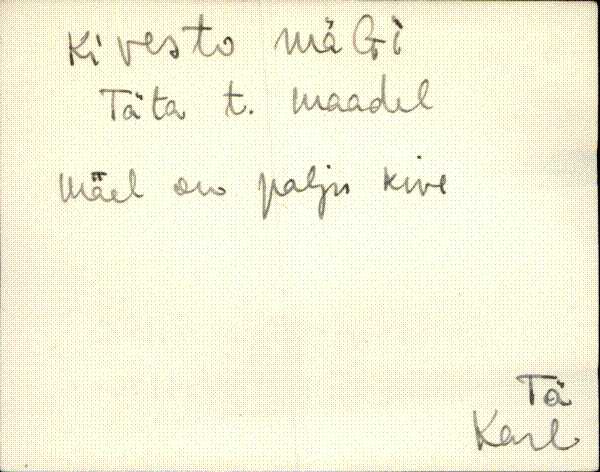 Kivesto mäGi
Täta t. maadel
Mäel on palju kive
Tä
Karl